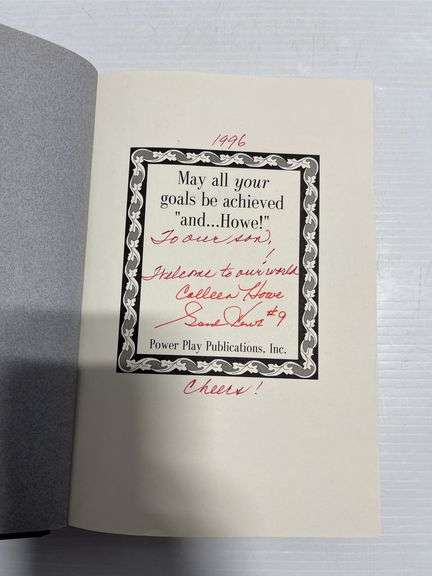 1996
May all your
goals be achieved
"and...Howe!"
To our son,
Welcome to our world!
Colleen Howe
Gordie Howe #9
Power Play Publications, Inc.
Cheers!